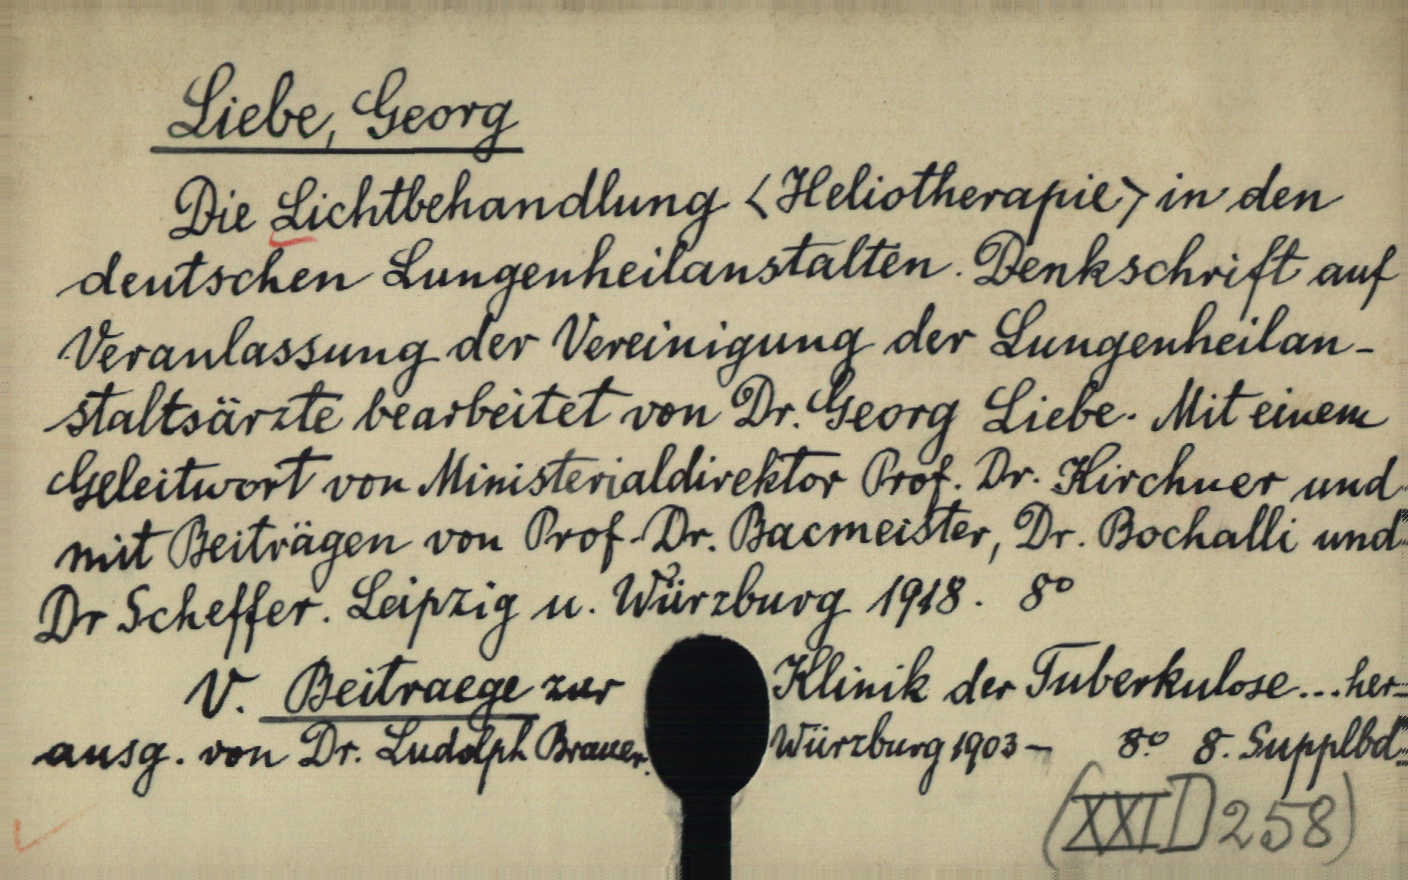 Liebe, Georg
Die Lichtbehandlung <Heliotherapie> in den
deutschen Lungenheilanstalten. Denkschrift auf
Veranlassung der Vereinigung der Lungenheilan-
staltsärzte bearbeitet von Dr. Georg Liebe. Mit einem
Geleitwort von Ministerialdirektor Prof. Dr. Kirchner und
mit Beiträgen von Prof. Dr. Bacmeister, Dr. Bochalli und
Dr Scheffer. Leipzig u. Würzburg 1918. 8°
V. Beitraege zur Klinik der Tuberkulose... her-
ausg. von Dr. Ludolph Brauer. Würzburg 1903 - 8° 8. Supplbd.
(XXI D 258)